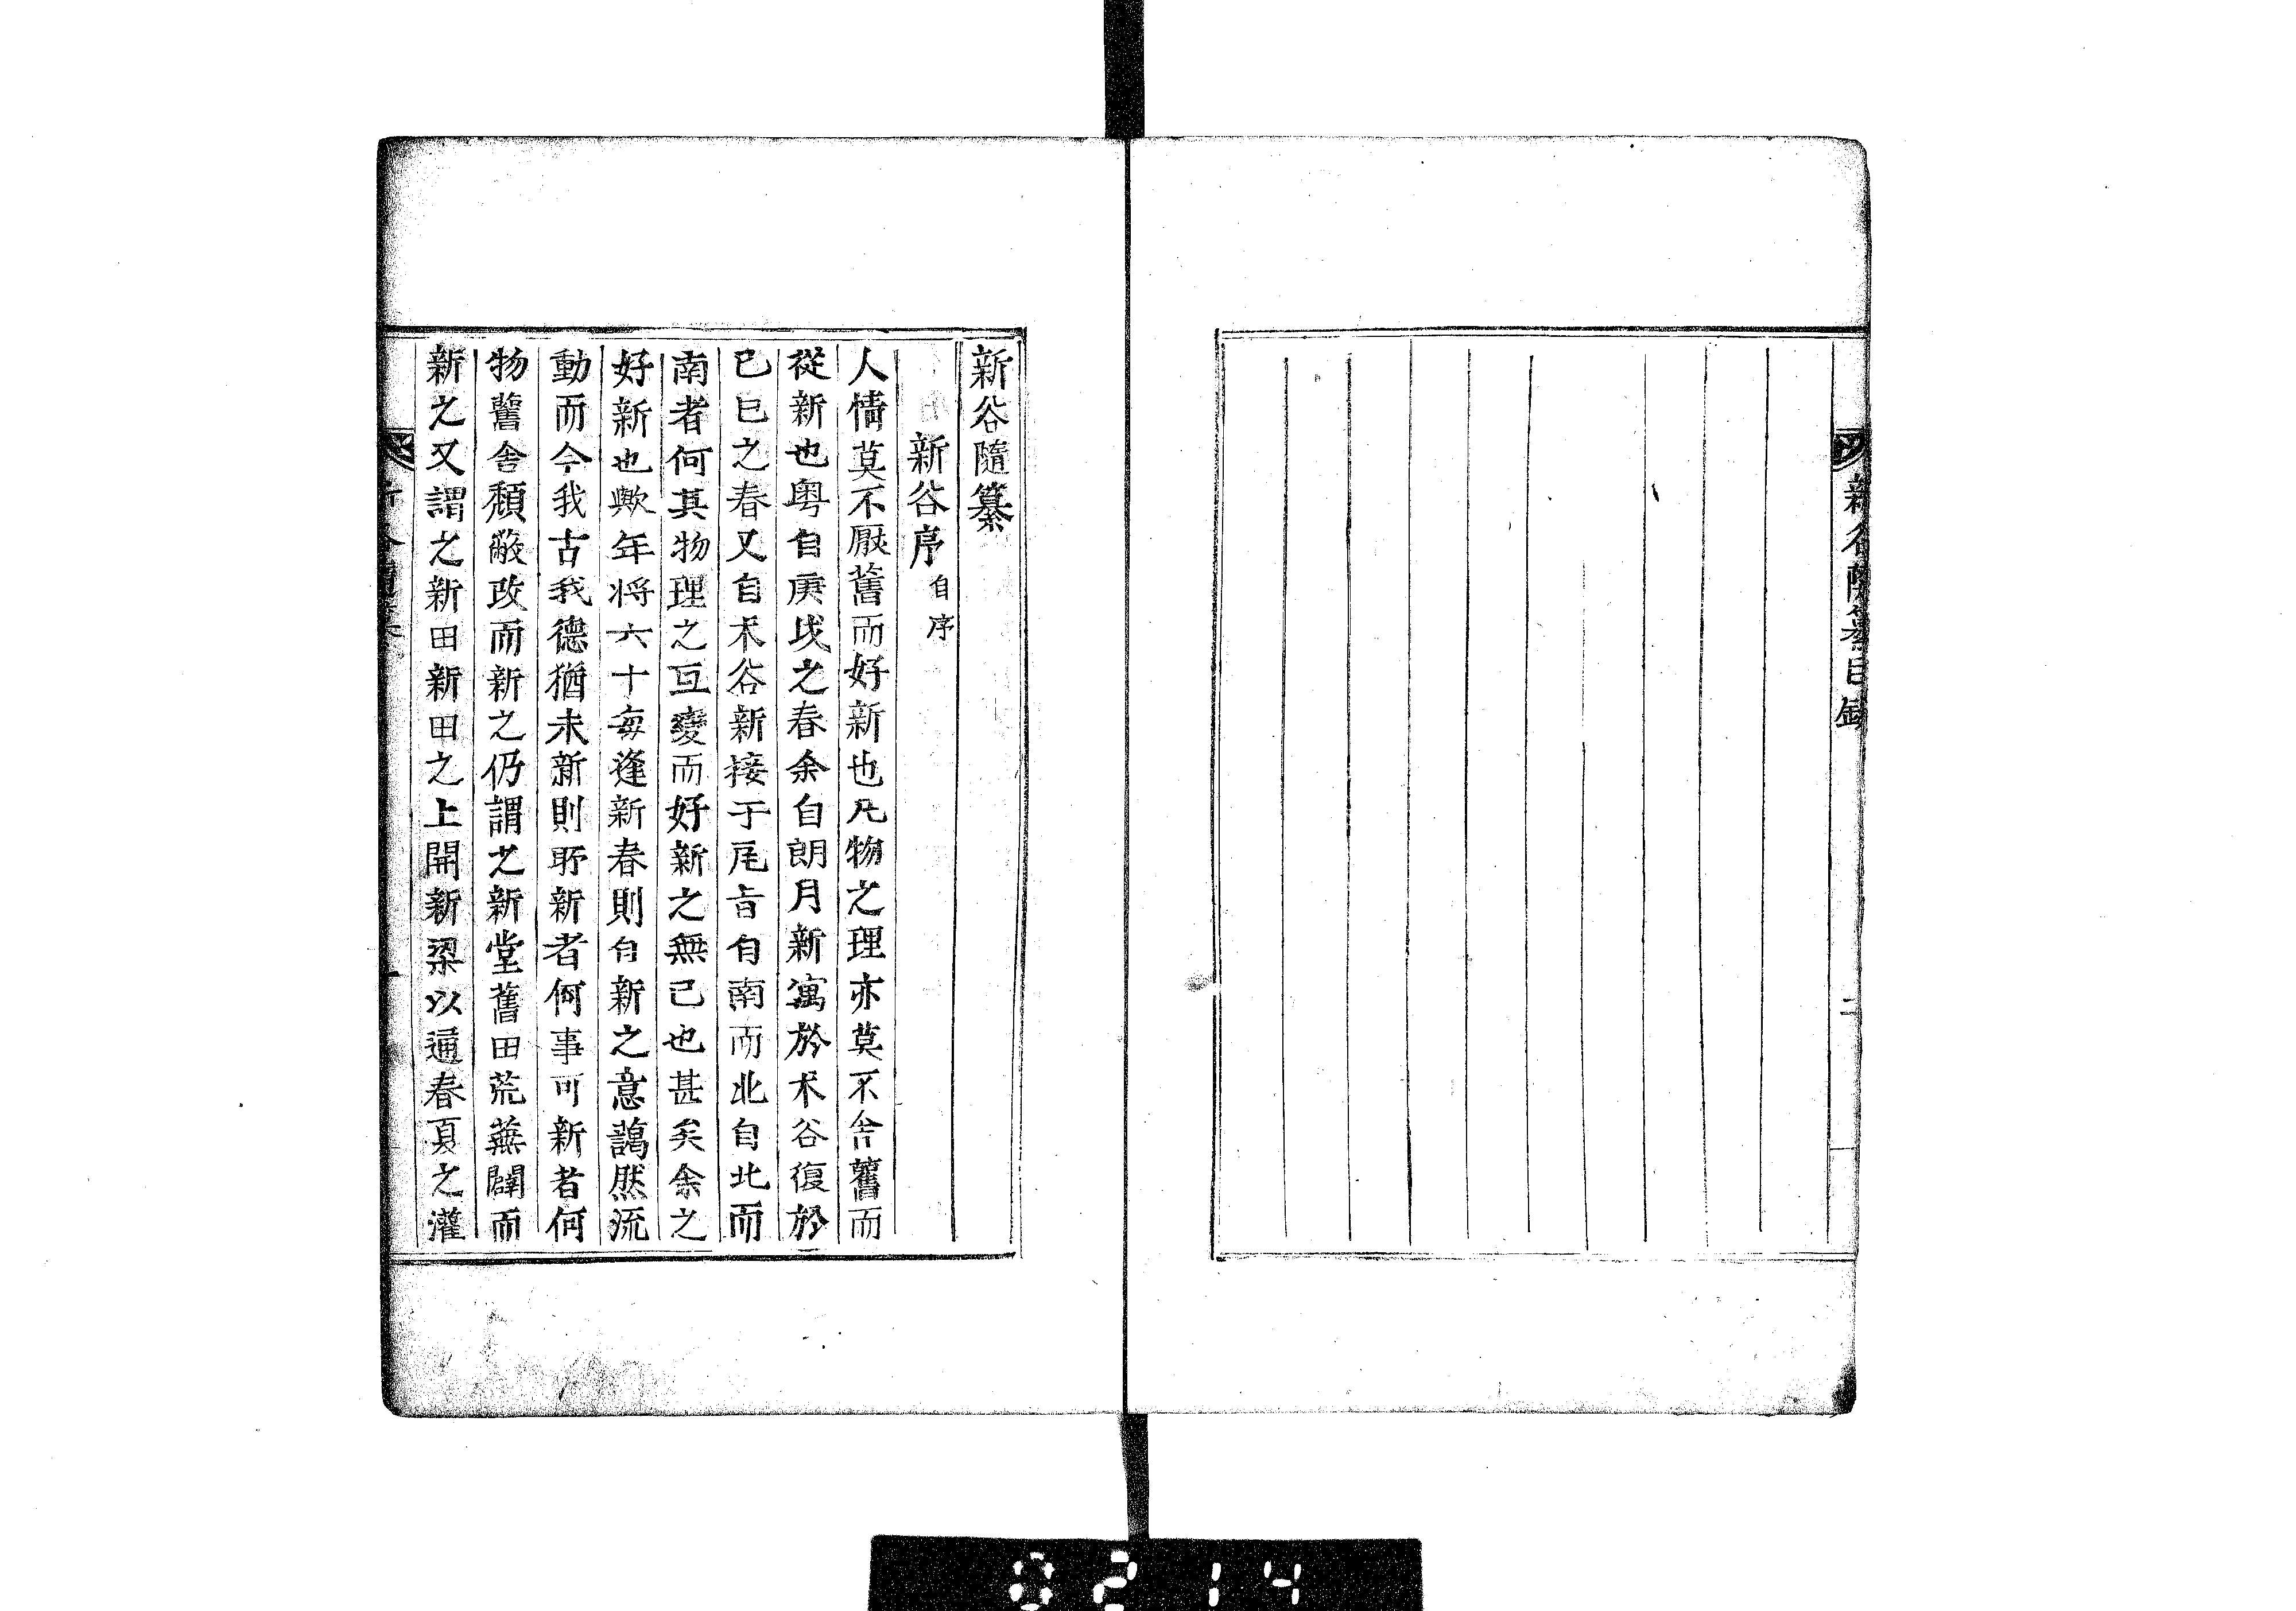 新谷隨纂目錄
二
新谷隨纂
新谷序 自序
人情莫不厭舊而好新也凡物之理亦莫不舍舊而
從新也粤自庚戌之春余自朗月新寓於木谷復於
己巳之春又自木谷新接于尾旨自南而北自北而
南者何其物理之互變而好新之無已也甚矣余之
好新也歟年将六十每逢新春則自新之意藹然流
動而今我古我德猶未新則所新者何事可新者何
物舊舍頹敝改而新之仍謂之新堂舊田荒蕪闢而
新之又謂之新田新田之上開新梁以通春夏之灌
一
0214